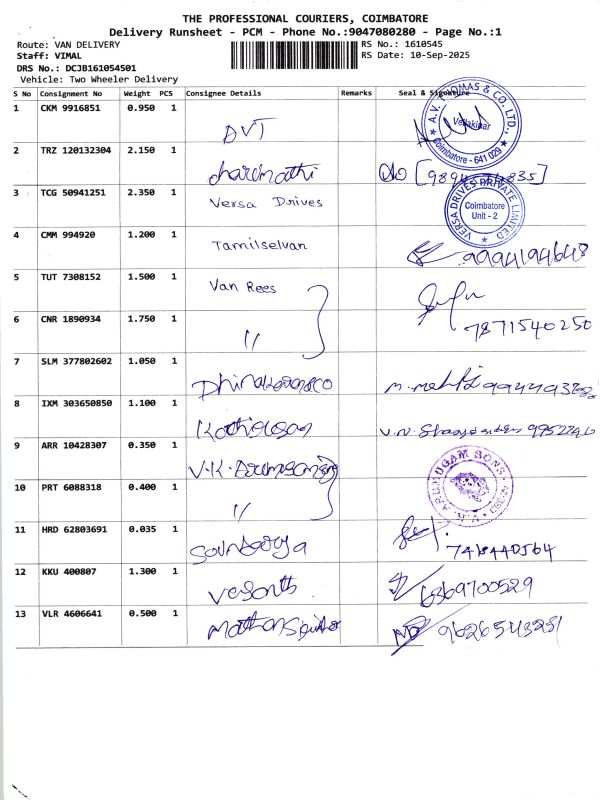 THE PROFESSIONAL COURIERS, COIMBATORE
Delivery Runsheet - PCM - Phone No.:9047080280 - Page No.:1
Route: VAN DELIVERY RS No.: 1610545
Staff: VIMAL RS Date: 10-Sep-2025
DRS No.: DCJB161054501
Vehicle: Two Wheeler Delivery
S No Consignment No Weight PCS Consignee Details Remarks Seal & Signature
1 CKM 9916851 0.950 1 AVT A.V. THOMAS & CO. LTD., Vellakinar Coimbatore - 641 029
2 TRZ 120132304 2.150 1
3 TCG 50941251 2.350 1 Versa Drives VERSA DRIVES PRIVATE LIMITED Coimbatore Unit - 2
4 CMM 994920 1.200 1 Tamilselvan 9994194648
5 TUT 7308152 1.500 1 Van Rees
6 CNR 1890934 1.750 1 " 7871540250
7 SLM 377802602 1.050 1
8 IXM 303650850 1.100 1
9 ARR 10428307 0.350 1
10 PRT 6088318 0.400 1 "
11 HRD 62803691 0.035 1
12 KKU 400807 1.300 1 6369700529
13 VLR 4606641 0.500 1